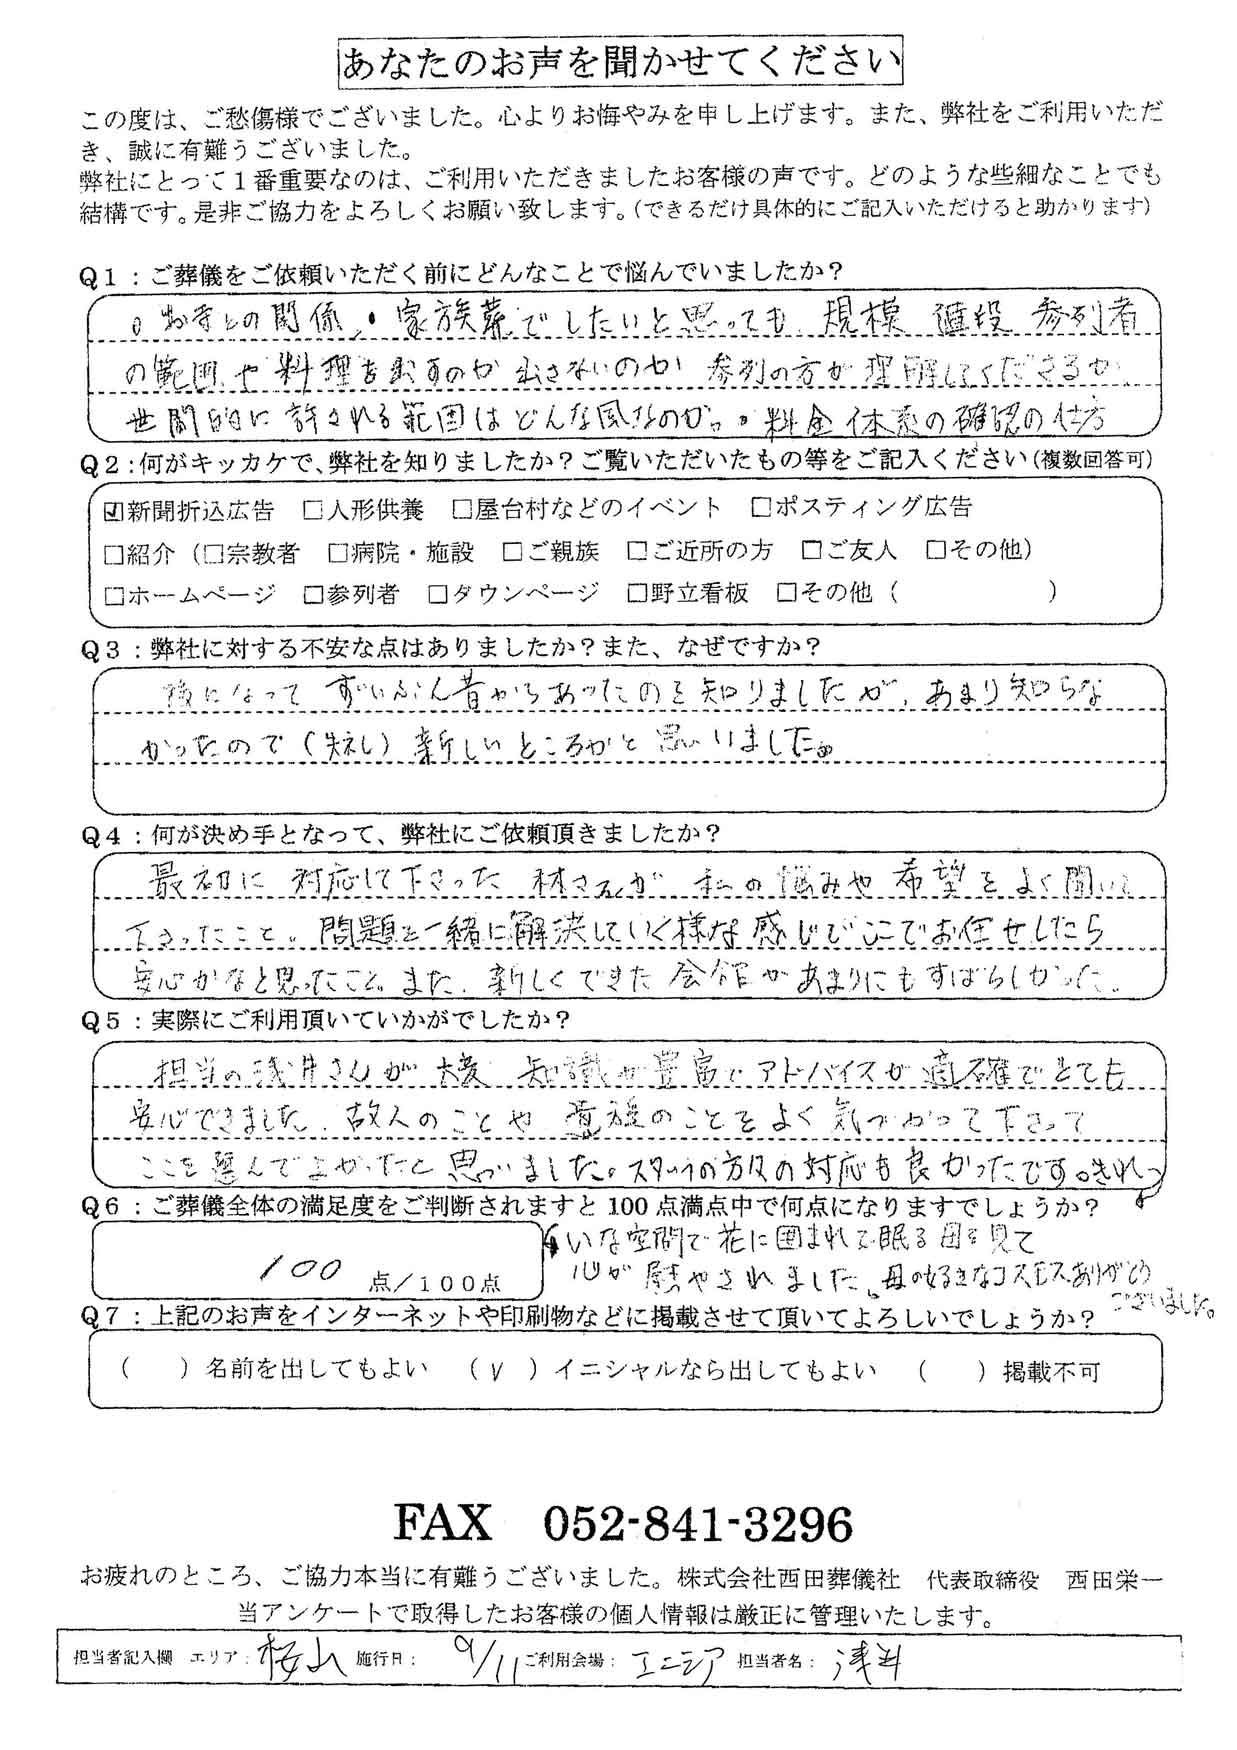 あなたのお声を聞かせてください
この度は、ご愁傷様でございました。心よりお悔やみを申し上げます。また、弊社をご利用いただ
き、誠に有難うございました。
弊社にとって1番重要なのは、ご利用いただきましたお客様の声です。どのような些細なことでも
結構です。是非ご協力をよろしくお願い致します。(できるだけ具体的にご記入いただけると助かります)
Q1:ご葬儀をご依頼いただく前にどんなことで悩んでいましたか?
。お寺との関係、・家族葬でしたいと思っても、規模 値段 参列者
の範囲や料理を出すのか出さないのか 参列の方が理解してくださるか、
世間的に許される範囲はどんな風なのか。・料金体系の確認の仕方
Q2:何がキッカケで、弊社を知りましたか?ご覧いただいたもの等をご記入ください(複数回答可)
☑新聞折込広告 □人形供養 □屋台村などのイベント □ポスティング広告
□紹介(□宗教者 □病院・施設 □ご親族 □ご近所の方 □ご友人 □その他)
□ホームページ □参列者 □タウンページ □野立看板 □その他( )
Q3:弊社に対する不安な点はありましたか?また、なぜですか?
後になって ずいぶん昔からあったのを知りましたが、あまり知らな
かったので(失礼)新しいところかと思いました。
Q4:何が決め手となって、弊社にご依頼頂きましたか?
最初に対応して下さった 林さんが 私の悩みや希望をよく聞いて
下さったこと。問題を一緒に解決していく様な感じでここでお任せしたら
安心かなと思ったこと。また、新しくできた会館があまりにもすばらしかった。
Q5:実際にご利用頂いていかがでしたか?
担当の浅井さんが大変 知識が豊富でアドバイスが適確でとても
安心できました。故人のことや遺族のことをよく気づかって下さって
ここを選んでよかったと思いました。スタッフの方々の対応も良かったです。きれ
Q6:ご葬儀全体の満足度をご判断されますと100点満点中で何点になりますでしょうか?
100 点/100点
いな空間で花に囲まれて眠る母を見て
心が慰やされました。母の好きなコスモスありがとう
ございました。
Q7:上記のお声をインターネットや印刷物などに掲載させて頂いてよろしいでしょうか?
( )名前を出してもよい (✓)イニシャルなら出してもよい ( )掲載不可
FAX 052-841-3296
お疲れのところ、ご協力本当に有難うございました。株式会社西田葬儀社 代表取締役 西田栄一
当アンケートで取得したお客様の個人情報は厳正に管理いたします。
担当者記入欄 エリア:桜山 施行日:9/11 ご利用会場:エニシア 担当者名:浅井